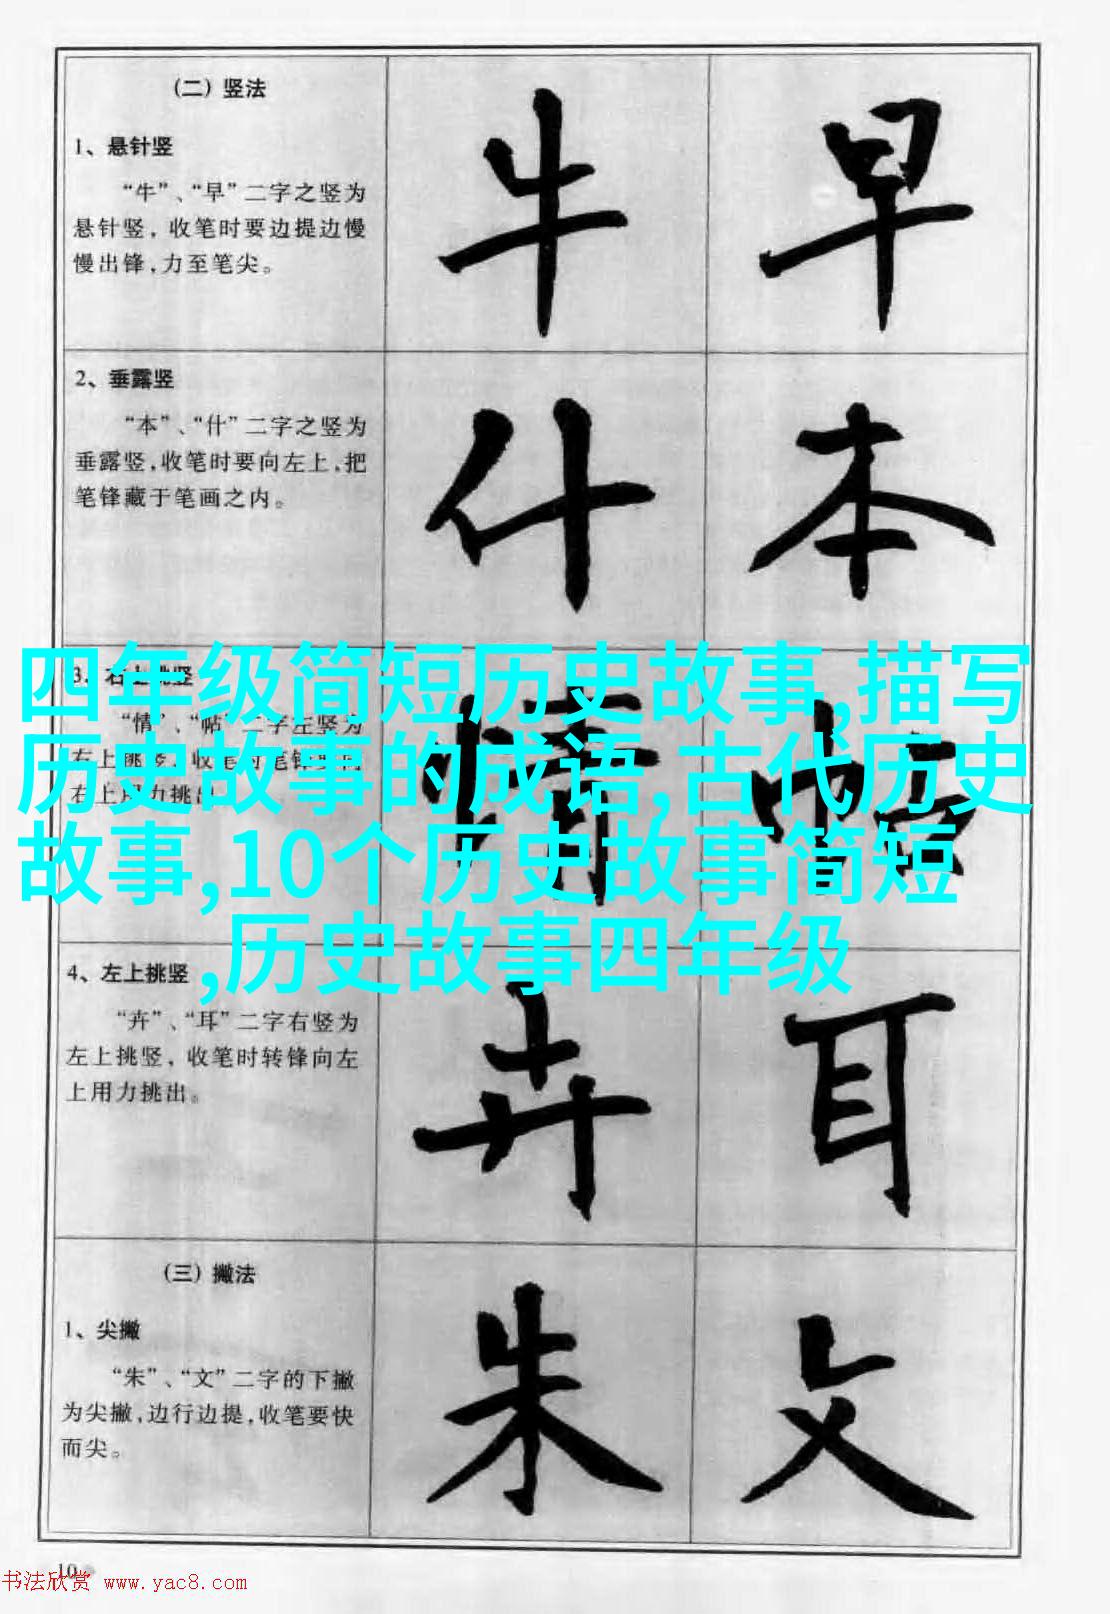 （二）竖法
1、悬针竖
“牛”、“早”二字之竖为
悬针竖，收笔时要边提边慢
慢出锋，力至笔尖。
牛 早
2、垂露竖
“本”、“什”二字之竖为
垂露竖，收笔时要向左上，把
笔锋藏于笔画之内。
什 本
3、右上挑竖
“情”、“帖”二字左竖为
右上挑竖，收笔时笔锋
右上用力挑出
情 帖
四年级简短历史故事,描写
历史故事的成语,古代历史
故事,10个历史故事简短
,历史故事四年级
4、左上挑竖
“卉”、“耳”二字右竖为
左上挑竖，收笔时转锋向左
上用力挑出。
卉 耳
（三）撇法
1、尖撇
“朱”、“文”二字的下撇
为尖撇，边行边提，收笔要快
而尖。
朱 文
10
书法欣赏 www.yac8.com